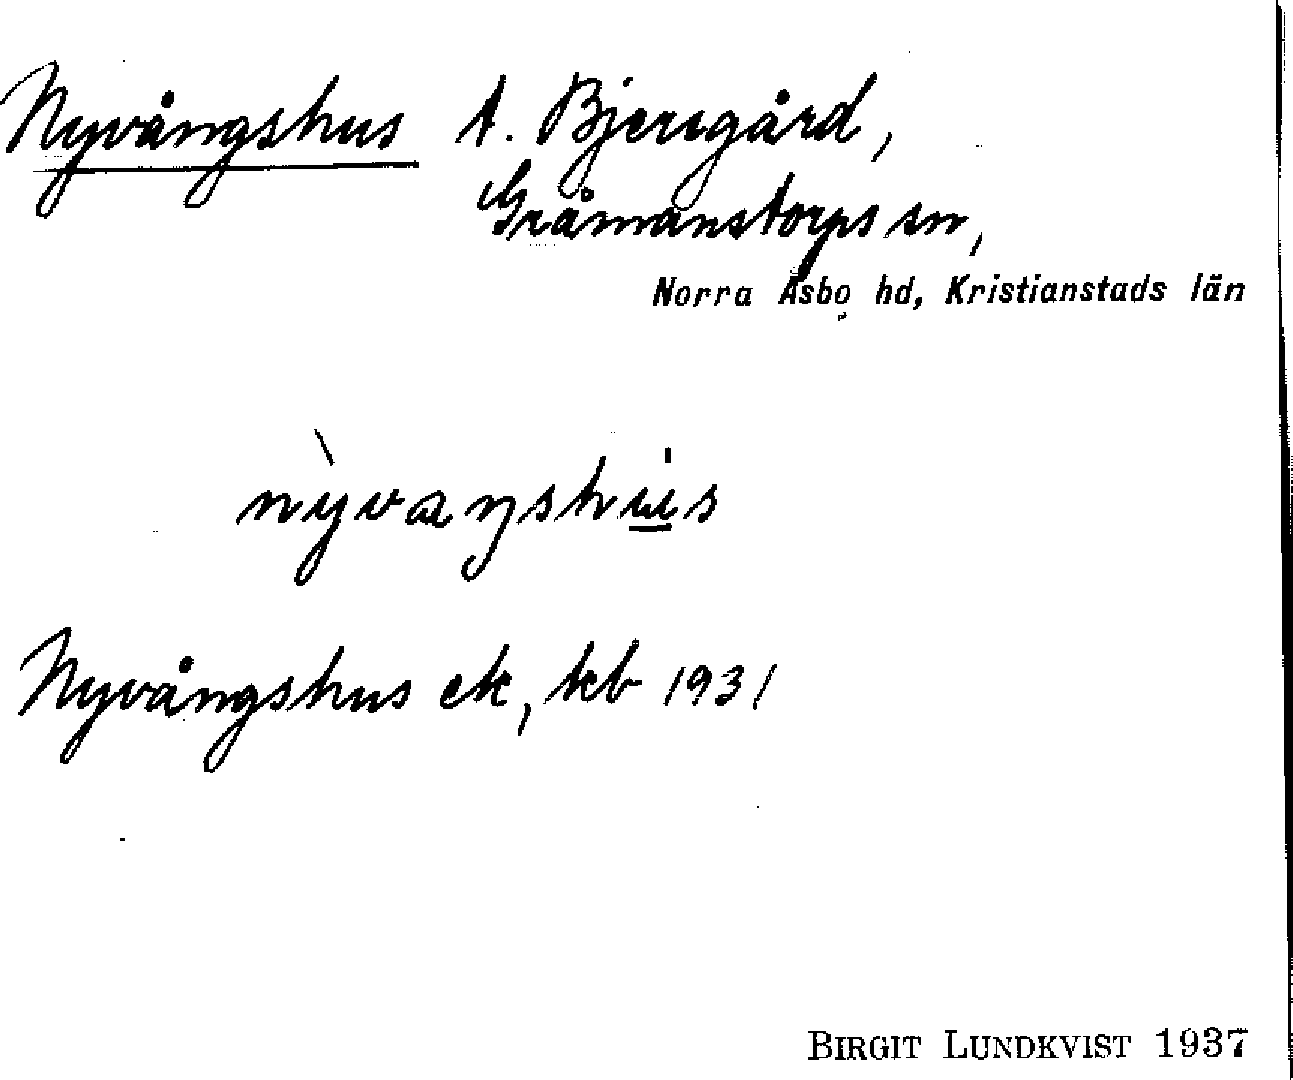 Nyvångshus t. Bjersgård,
Gråmanstorps sn,
Norra Åsbo hd, Kristianstads län
nỳvaŋshu̲s
Nyvångshus ek, kb 1931
BIRGIT LUNDKVIST 1937